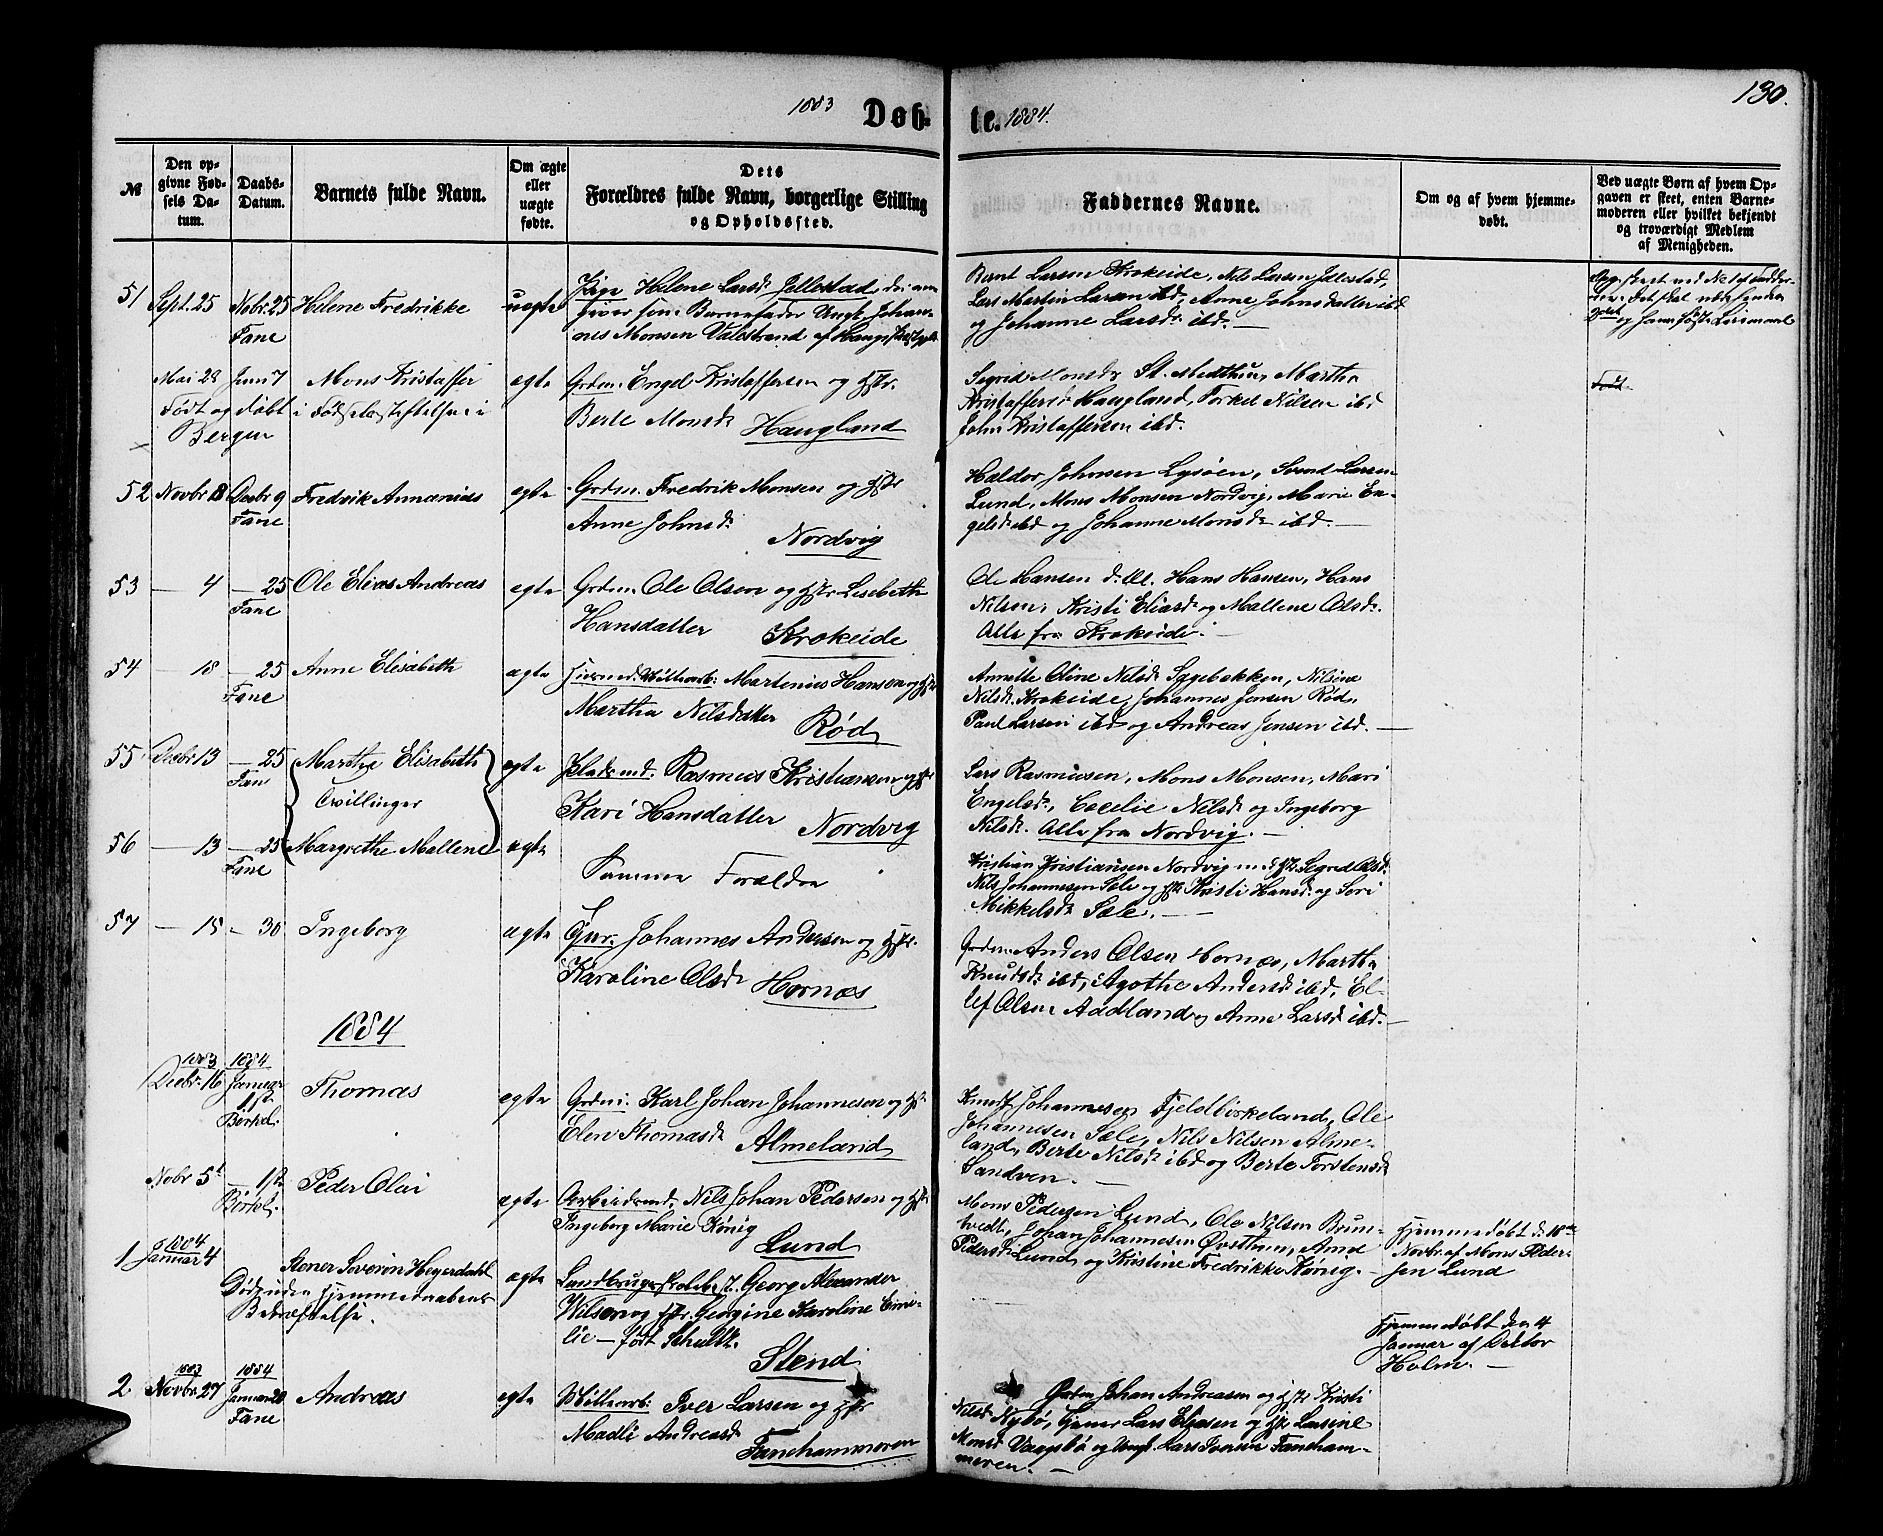 130.
1883 Døb- te. 1884.
№
Den opgivne Fødsels Datum.
Daabs-Datum.
Barnets fulde Navn.
Om ægte eller uægte fødte.
Dets Forældres fulde Navn, borgerlige Stilling og Opholdssted.
Faddernes Navne.
Om og af hvem hjemmedøbt.
Ved uægte Børn af hvem Opgaven er skeet, enten Barnemoderen eller hvilket bekjendt og troværdigt Medlem af Menigheden.
51 Sept. 25 Nobr. 25 Fane
Helene Fredrikke
uegte
Pige Helene Larsd. Jellestad, der an-
giver som Barnefader Ungk. Johan-
nes Monsen Valestrand af Haugs
Bernt Larsen Krokeide, Nils Larsen Jellestad,
Lars Martin Larsen ibd, Anne Johnsdatter ibd
og Johanne Larsd. ibd. —
Mai 28 Juni 7
Født og døbt i Fødselsstiftelsen i
Bergen
Mons Kristoffer
egte
Grdm. Engel Kristoffersen og Hstr.
Berte Monsd. Haugland
Sigrid Monsd. St. Midtthun, Martha
Kristoffersd Haugland, Torkel Nilsen ibd
John Kristoffersen ibd.
52 Novbr 8 Decbr 9 Fane
Fredrik Annanias
egte
Grdm. Fredrik Monsen og Hstr
Anne Johnsd.
Nordvig
Haldor Johnsen Lysøen, Svend Larsen
Lund, Mons Monsen Nordvig, Marie En-
gelsd ibd og Johanne Monsd. ibd. —
53 — 4 — 25 Fane
Ole Elias Andreas
egte
Grdm. Ole Olsen og Hstr Lisebeth
Hansdatter Krokeide
Ole Hansen d. æl. Hans Hansen, Hans
Nilsen, Kristi Eliasd. og Mallene Olsd.
Alle fra Krokeide. —
54 — 18 — 25 Fane
Anne Elisabeth
egte
Huusmd. Møllearb. Martenius Hansen og Hstr
Martha Nilsdatter
Rød
Annette Oline Nilsd. Sagebakken, Nilsine
Nilsd. Krokeide, Johannes Jensen Rød,
Paul Larsen ibd og Andreas Jensen ibd. —
55 Decbr 13 — 25 Fane
Marthe Elisabeth
Tvillinger
egte
Pladsmd. Rasmus Kristiansen og Hstr
Kari Hansdatter Nordvig
Lars Rasmusen, Mons Monsen, Mari
Engelsd., Cecelie Nilsd og Ingeborg
Nilsd. Alle fra Nordvig. —
56 — 13 — 25 Fane
Margrethe Mallene
egte
Samme Forældre
Kristian Kristiansen Nordvig med Hst. Segred Olsd.
Nils Johannesen Sæle og Hst Kristi Hansd. og Sori
Mikkelsd Sæle. —
57 — 15 — 30
Ingeborg
egte
Gmr. Johannes Andersen og Hstr.
Karoline Olsd. Hornæs
Grdm. Anders Olsen Hornæs, Martha
Knudsd. ibd, Agathe Andersd. ibd, El-
lef Olsen Aadland og Anne Larsd ibd. —
1884
1883 Decbr. 16 1884 Januar 1ste Børkel.
Thomas
egte
Grdm. Karl Johan Johannesen og Hstr
Elen Thomasd. Almeland
Knut Johannesen Fjeldbirkeland, Ole
Johannesen Sæle, Nils Nilsen Alme-
land, Berte Nilsd ibd og Berte Torstensd
Sandven. —
Nobr 5t — 1ste Birkel.
Peder Olai
egte
Arbeidsmd. Nils Johan Pedersen og Hstr
Ingeborg Marie König
Lund
Mons Pedersen Lund, Ole Nilsen Brun-
tvedt, Johan Johannesen Øvsttun, Ane
Pedersd. Lund og Kristine Fredrikke König. —
Hjemmedøbt d. 18de
Novbr. af Mons Peder-
sen Lund
1 1884 Januar 4
Stener Severin Heyerdahl
Død uden Hjemmedaabens
Bekræftelse.
egte
Landbrugsskolebest. Georg Alexander
Wilson og Hstr. Georgine Karoline Emi-
lie — født Schultz.
Stend
Hjemmedøbt den 4
Januar af Doktor
Holm. —
2 1883 Novbr 27 1884 Januar 20 Fane
Andreas
egte
Møllearb. Iver Larsen og Hstr
Madli Andreasd.
Fanehammeren
Grdm Johan Andreasen og Hstr Kristi
Nilsd. Nybø, Tjener Lars Eliasen og Hst Larsine
Monsd Vaagsbø og Ungk. Lars Iversen Faneham-
meren. —